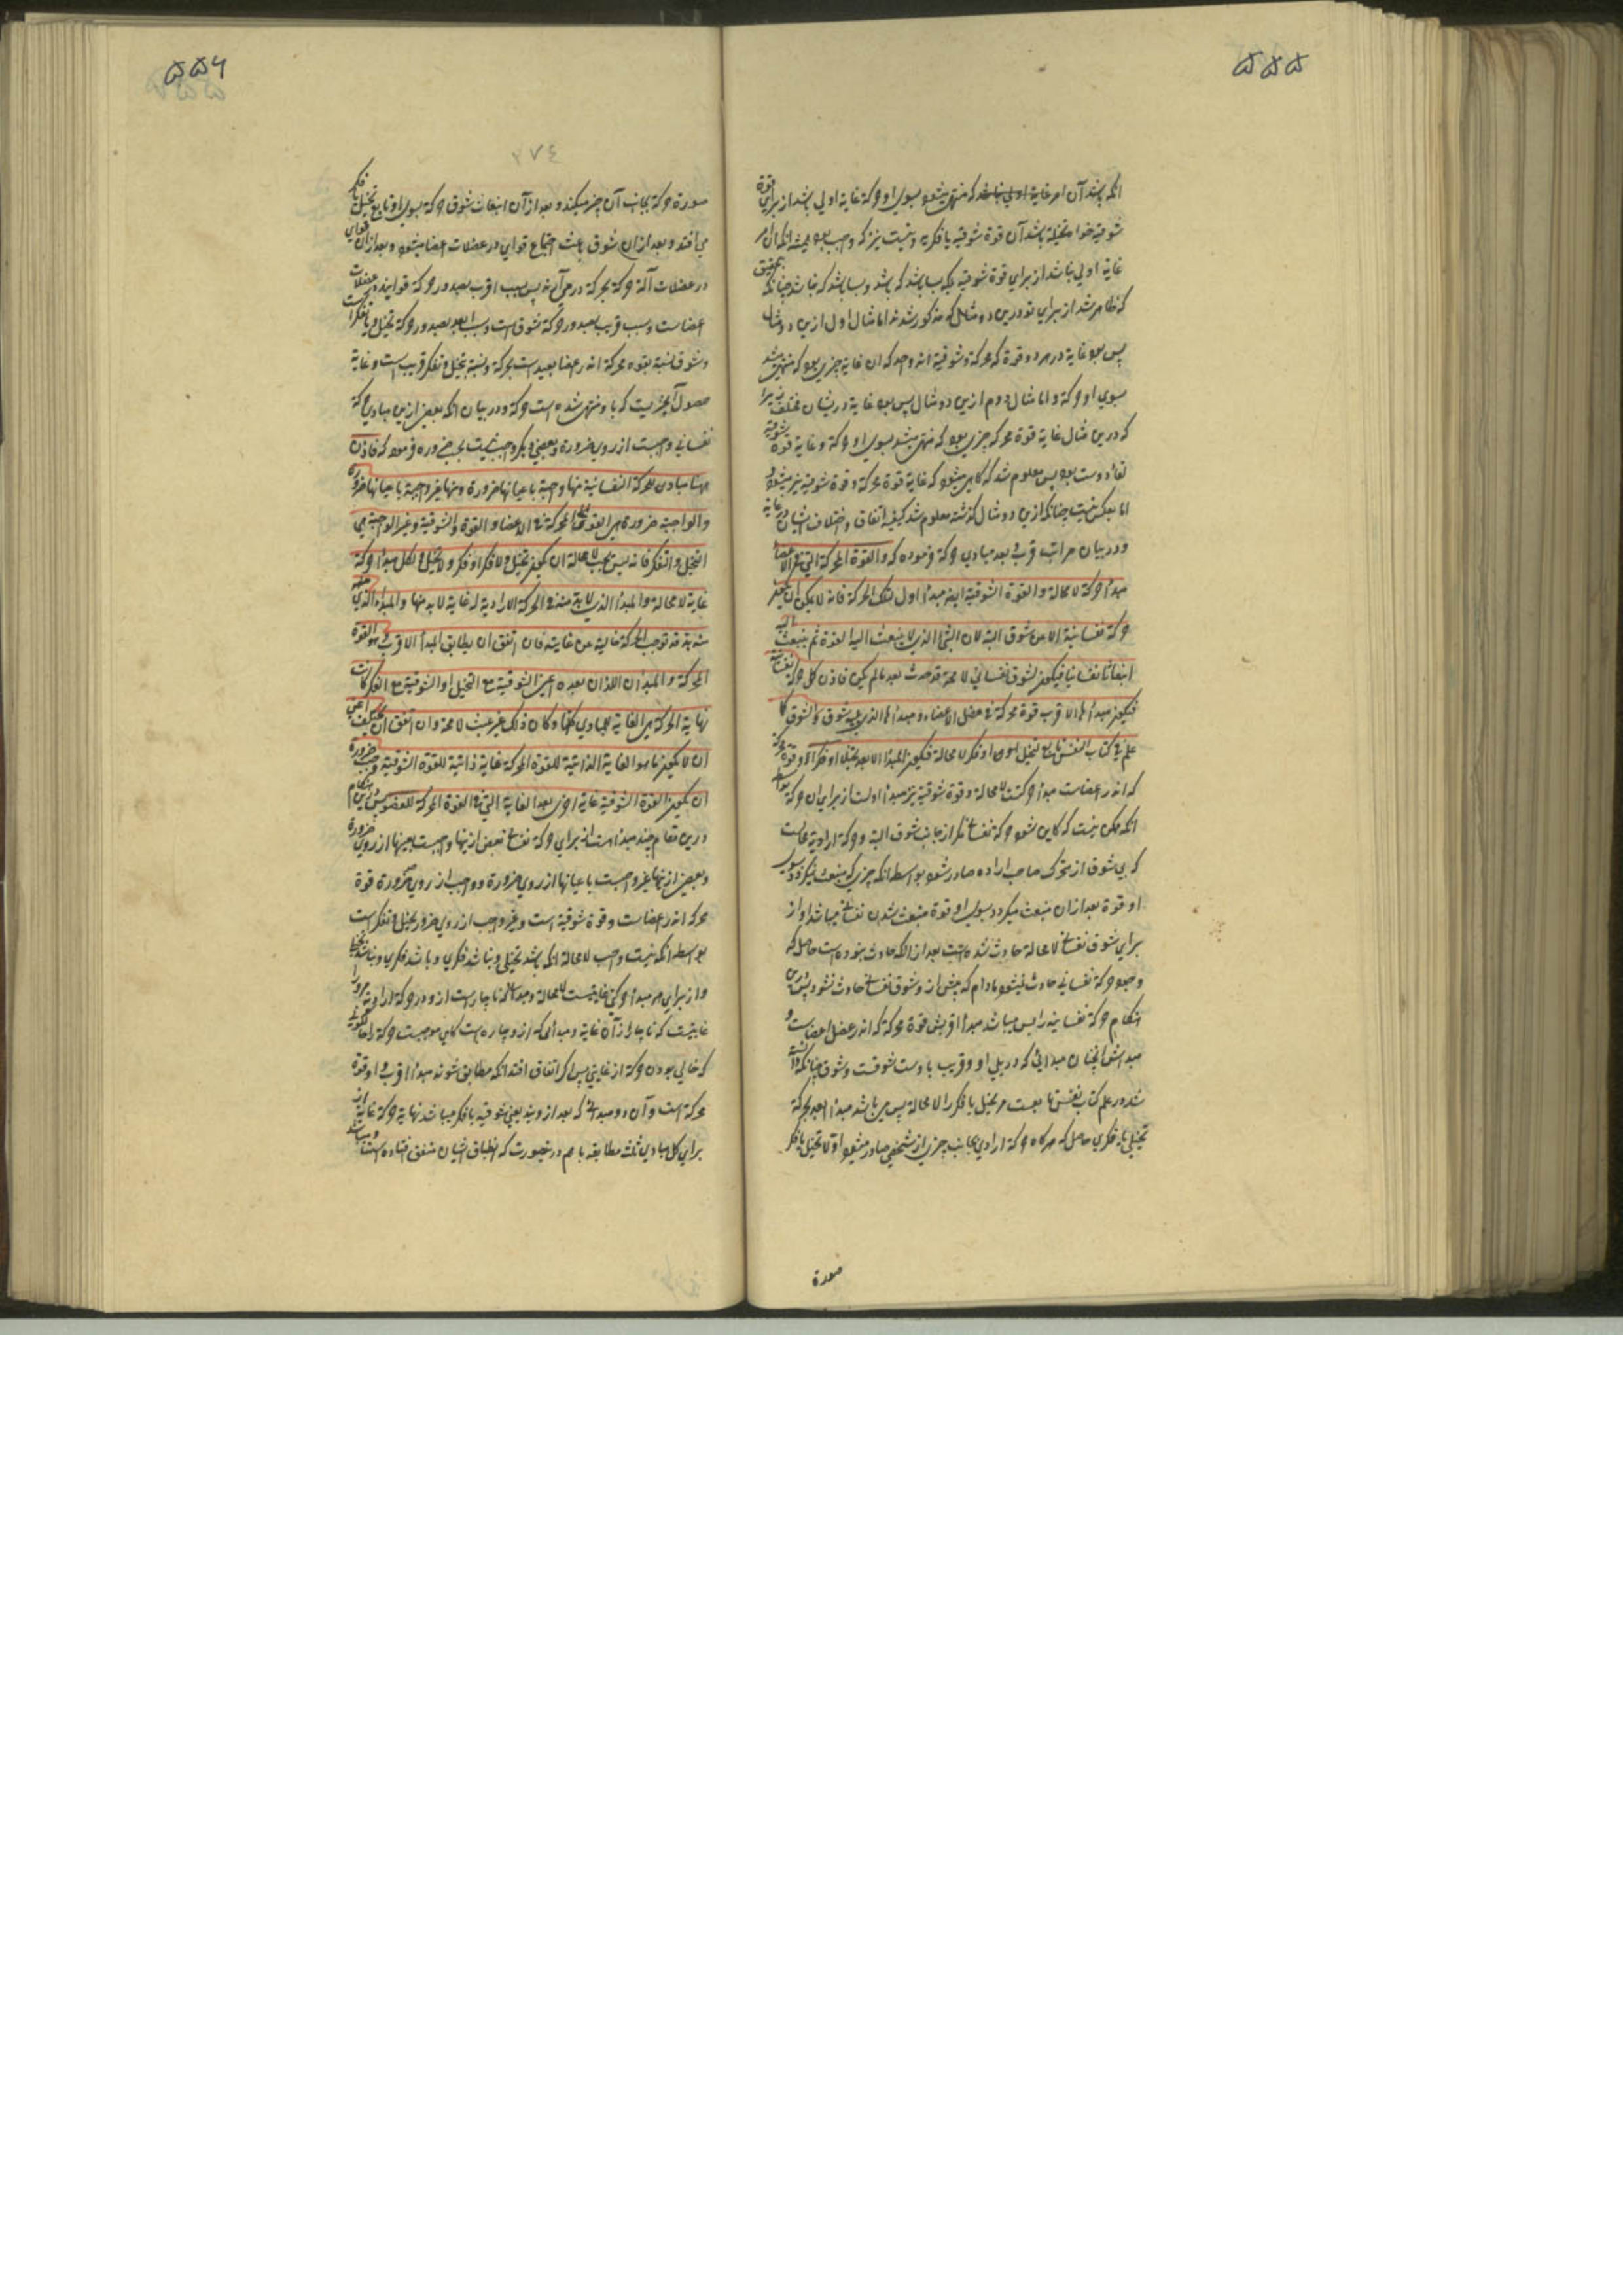 ۵۵۵
انکه باشد آن امر غایة اولی نباشد که منتهی میشود بسوی او حرکة غایة اولی باشد از برای قوة
شوقیه خواه متخیله باشد آن قوة شوقیه یا فکریه و نیست نیز که واجب بود همیشه انکه آن امر
غایة اولی نباشد از برای قوة شوقیه بلکه بسا باشد که باشد و بسا باشد که نباشد چنانکه بتحقیق
که ظاهر شد از برای تو درین دو مثال که مذکور شدند اما مثال اول ازین دو مثال
پس بود غایة در هر دو قوة که محرکة و شوقیة اند واحد که ان غایة چیزی بود که منتهی شد
بسوی او حرکة و اما مثال دوم ازین دو مثال پس بود غایة دریشان مختلف زیرا
که درین مثال غایة قوة محرکه چیزی بود که منتهی میشد بسوی او حرکة و غایة قوة شوقیه
لقاء دوست بود پس معلوم شد که گاهی میشود که غایة قوة محرکة و قوة شوقیة نیز میشود و
اما بعکس نیست چنانکه ازین دو مثال گذشته معلوم شد کیفیة اتفاق و اختلاف ایشان در غایة
و در بیان مراتب قرب و بعد مبادی حرکة فرموده که والقوة المحرکة التی فی الاعضاء
مبدأ حرکة لا محالة والقوة الشوقیة ایضا مبدأ اول لتلک الحرکة فانه لا یمکن ان یکون
حرکة نفسانیة الا عن شوق البتة لان الشیء الذی لا ینبعث الیه القوة ثم ینبعث الیه
انبعاثا نفسانیا فیکون لشوق نفسانی لا محة قد حدث بعد ما لم یکن فاذن کل حرکة نفسانیة
فیکون مبدأها الاقرب قوة محرکة فی عضل الاعضاء و مبدأها الذی یلیه شوق والشوق کما
علم فی کتاب النفس تابع لتخیل او فکر لا محالة فیکون المبدأ الابعد تخیلا او فکرا و قوة محرکة
که اندر اعضاست مبدأ حرکتست لا محالة و قوة شوقیة نیز مبدأ اولست از برای ان حرکة بواسطه
انکه ممکن نیست که کاین شود حرکة نفسانی مگر از جانب شوق البته و حرکة ارادیة محالست
که بی شوق از متحرک صاحب اراده صادر شود بواسطه انکه چیزی که منبعث نمیگردد بسوی
او قوة بعد ازان منبعث میگردد بسوی او قوة منبعث شدن نفسانی میباشد او از
برای شوق نفسانی لا محالة حادث شده است بعد از انکه حادث نبوده است حاصل که
وجود حرکة نفسانی حادث نمیشود مادام که پیش از و شوق نفسانی حادث نشود پس درین
هنکام حرکة نفسانیه را پس میباشد مبدأ اقربش قوة محرکة که اندر عضل اعضاست و
مبدأش انچنان مبدائی که در پلی او و قریب باوست شوقست و شوق چنانکه دانسته
شد در علم کتاب نفس تابعست مر تخیل یا فکر را لا محالة پس میباشد مبدأ ابعد بحرکة
تخیلی یا فکری حاصل که هرگاه حرکة ارادی بجانب چیزی از شخصی صادر میشود اولا تخیل یا فکر
صورة
۵۵۶
صورة حرکة بجانب آن چیز میکند و بعد از آن انبعاث شوق حرکة بسوی او تابع تخیل یا فکر
می افتد و بعد ازان شوق باعث اجتماع قوای در عضلات اعضا میشود و بعد ازان قوای
در عضلات آلة حرکة بحرکة درمی آرند پس سبب اقرب بعد و در حرکة قوایند در عضلات
اعضاست و سبب قریب بصدور حرکة شوق است و سبب ابعد بصدور حرکة تخیل و یا تفکراست
و شوق نسبة بقوه محرکة اندر اعضا بعید است بحرکة و نسبة بتخیل و تفکر قریب است و غایة
حصول آنچیزیست که باو منتهی شده است حرکة و در بیان انکه بعضی ازین مبادی حرکة
نفسانی واجبست از روی ضرورة و بعضی دیگر واجب نیست بحسب ضروره فرموده که فاذن
ههنا مبادی للحرکة النفسانیة منها واجبة باعیانها ضرورة و منها غیر واجبة باعیانها ضرورة
والواجبة ضرورة هی القوی المحرکة فی الاعضاء و القوة الشوقیة و غیر الواجبة هی
التخیل والتفکر فانه لیس یجب لا محالة ان یکون تخیل ولا فکر او فکر ولا تخیل و لکل مبدأ حرکة
غایة لا محالة والمبدأ الذی لا بد منه فی الحرکة الارادیة له غایة لا بد منها والمبدأ الذی
منه بد قد توجب الحرکة خالیة عن غایته فان اتفق ان یطابق المبدأ الاقرب و هو القوة
المحرکة والمبدآن اللذان بعده اعنی الشوقیة مع التخیل او الشوقیة مع الفکر کانت
نهایة الحرکة هی الغایة للمبادی کلها و کان ذلک غیر عبث لا محة و ان اتفق ان یختلف اعنی
ان لا یکون ما هو الغایة الذاتیة للقوة المحرکة غایة ذاتیة للقوة الشوقیة وجب ضرورة
ان یکون للقوة الشوقیة غایة اخری بعد الغایة التی فی القوة المحرکة للعضو پس درین هنکام
درین مقام چند مبدأ است از برای حرکة نفسانی بعضی ازینها واجبست بعینها از روی ضرورة
و بعضی ازینها غیر واجبست باعیانها از روی ضرورة و واجب از روی ضرورة قوة
محرکه اندر اعضاست و قوة شوقیة است و غیر واجب از روی ضرور تخیل و تفکر است
بواسطه انکه نیست واجب لا محالة انکه باشد تخیلی و نباشد فکری و یا باشد فکری و نباشد تخیلی
و از برای هر مبدأ حرکتی غایتیست لا محالة و مبدأی که ناچار است از و در حرکة ارادیة مرو را
غایتیست که ناچار از آن غایة و مبدأی که از و چاره است گاهی موجبست حرکة را
که خالی بودن حرکة از غایتی پس اگر اتفاق افتد انکه مطابق شوند مبدأ اقرب و او قوة
محرکة است و آن دو مبدأی که بعد از ویند یعنی شوقیه یا فکر میباشد نهایة حرکة غایة از
برای کل مبادی ثلثه مطابقه باهم در نصورت که انطباق ایشان متفق افتاده است